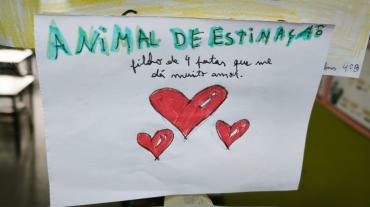 ANIMAL DE ESTINAÇÃO
filho de 4 patas que me
dá muito amor.